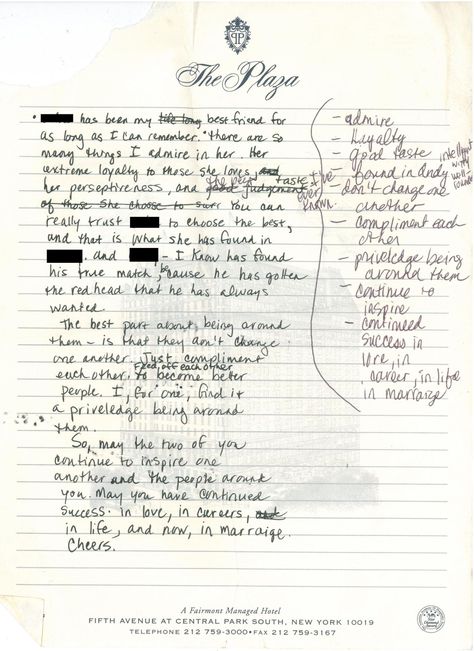 The Plaza
has been my life long best friend for
as long as I can remember. There are so
many things I admire in her. Her
extreme loyalty to those she loves, and
her perseptiveness, and the best good judgement taste I've ever known.
of those she choose to surr You can
really trust to choose the best,
and that is what she has found in
. and - I know has found
his true match, 'cause he has gotten
the redhead that he has always
wanted.
The best part about being around
them - is that they don't change
one another. Just compliment
each other. Feed off each other to become better
people. I, for one, find it
a priveledge being around
them.
So, may the two of you
continue to inspire one
another and the people around
you. May you have continued
success in love, in careers, and
in life, and now, in marraige.
Cheers.
- admire
- Loyalty
- good taste intelligent witty well
- found in Andy
- don't change one
another
- compliment each
other
- priveledge being
around them
- continue to
inspire
- continued
success in
love, in
career, in life
in marraige
A Fairmont Managed Hotel
FIFTH AVENUE AT CENTRAL PARK SOUTH, NEW YORK 10019
TELEPHONE 212 759-3000 • FAX 212 759-3167